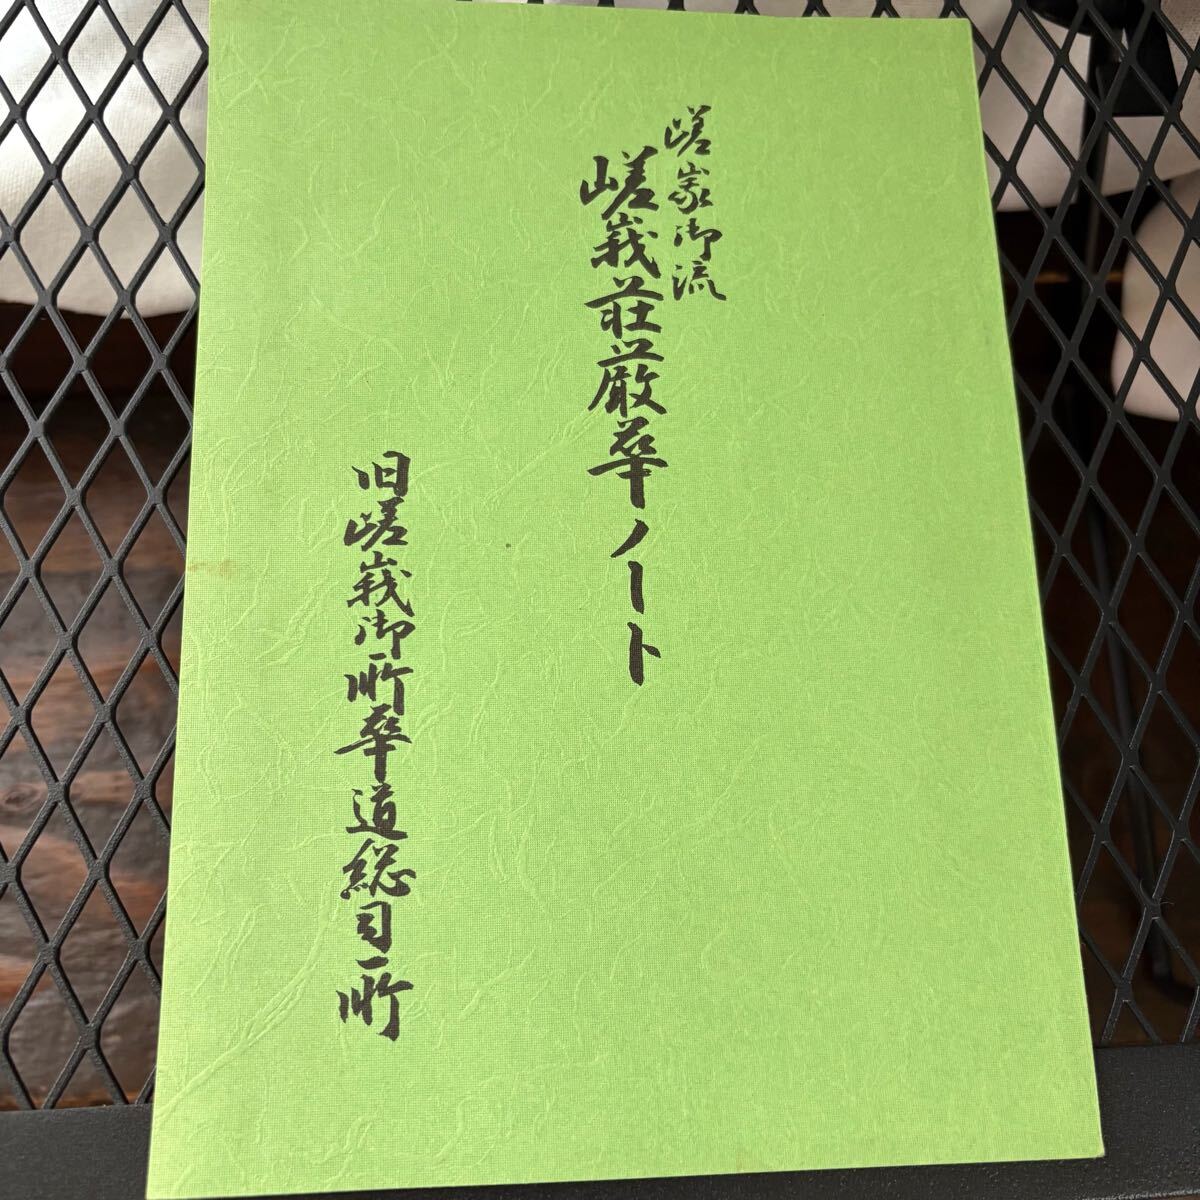 嵯峨御流
嵯峨荘厳華ノート
旧嵯峨御所華道総司所